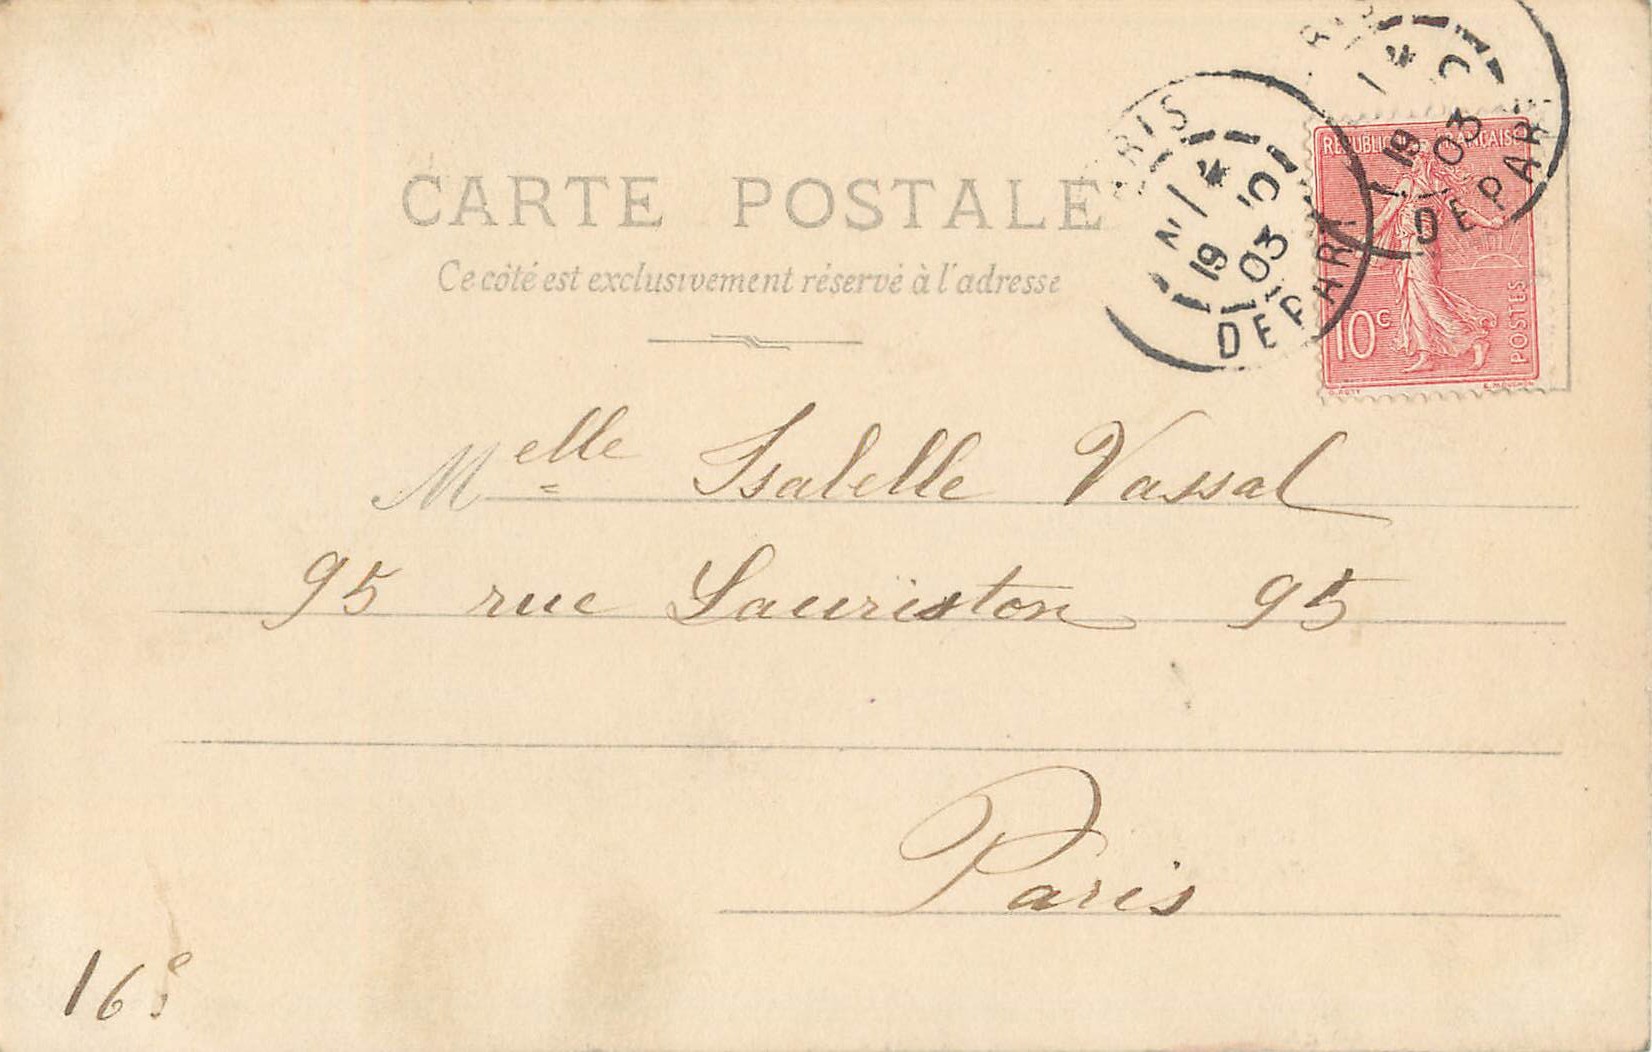 CARTE POSTALE
Ce côté est exclusivement réservé à l'adresse
PARIS
19
03
DEPART
19
03
DEPART
REPUBLIQUE FRANÇAISE
10c
POSTES
O. ROTY
E. MOUCHON
Melle Isabelle Vassal
95 rue Lauriston 95
Paris
16e